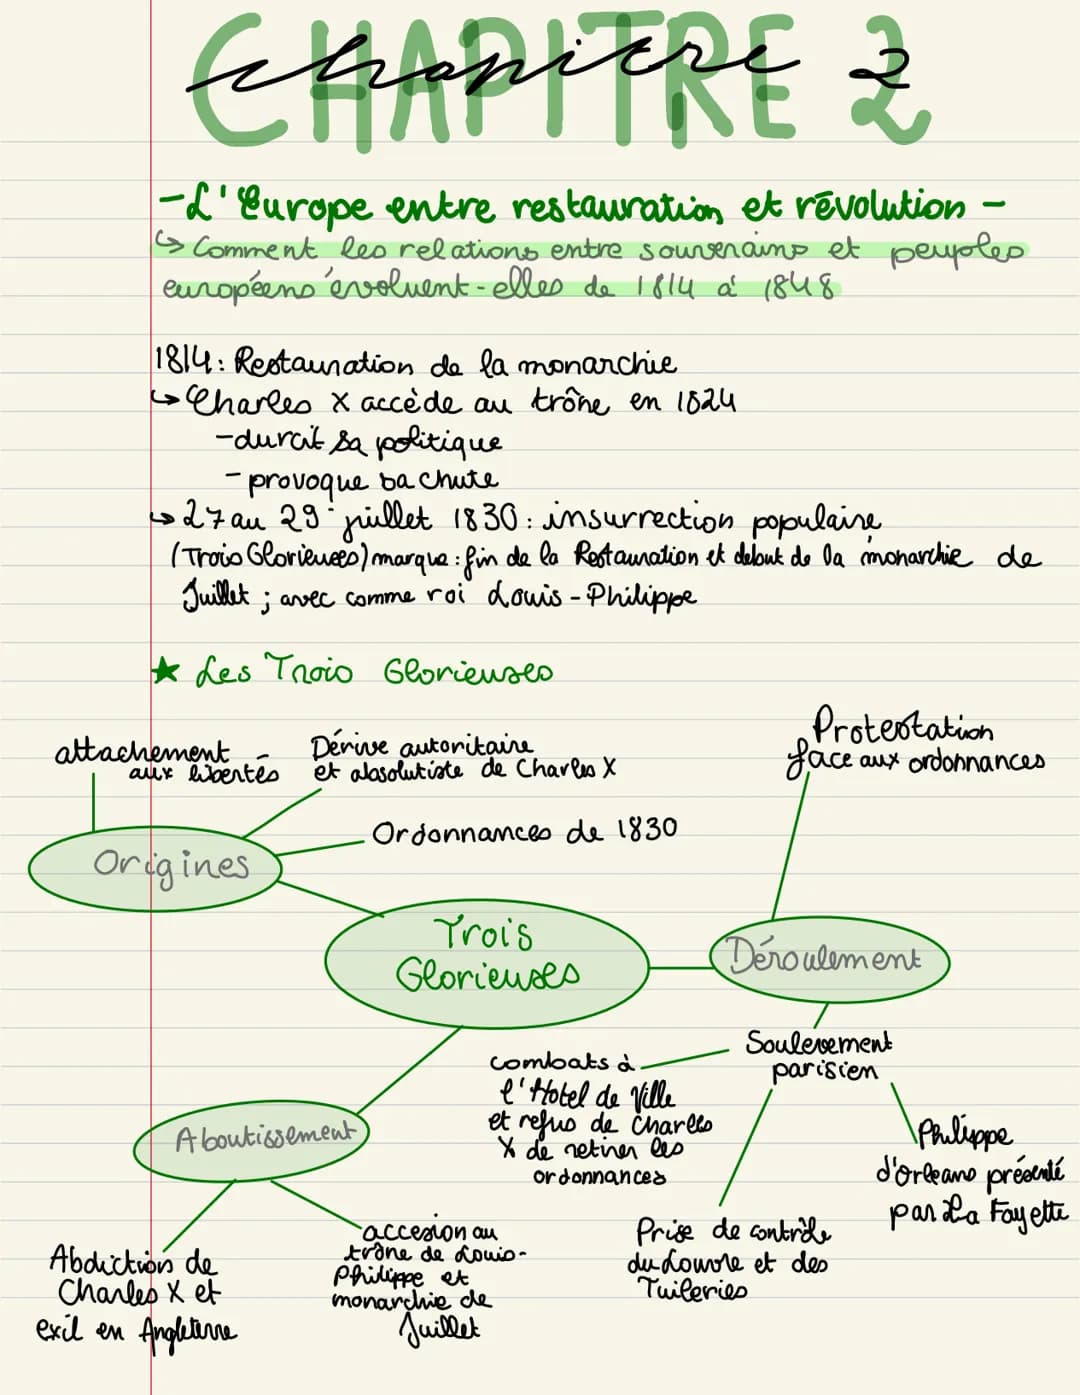 CHAPITRE 2
chapitre 2
-L'Europe entre restauration et révolution-
↳ Comment les relations entre souverains et peuples
européens évoluent-elles de 1814 à 1848
1814: Restauration de la monarchie
↳ Charles X accède au trône en 1824
-durcit sa politique
- provoque sa chute
↳ 27 au 29 juillet 1830: insurrection populaire
(Trois Glorieuses) marque: fin de la Restauration et debut de la monarchie de
Juillet ; avec comme roi Louis-Philippe
★ Les Trois Glorieuses
attachement
aux libertés
Dérive autoritaire
et absolutiste de Charles X
Ordonnances de 1830
Origines
Protestation
face aux ordonnances
Trois
Glorieuses
Déroulement
Soulevement
parisien
combats à
l'Hotel de Ville
et refus de Charles
X de retirer les
ordonnances
Philippe
d'Orleans présenté
par La Fayette
Prise de contrôle
du Louvre et des
Tuileries
Aboutissement
Abdiction de
Charles X et
exil en Angleterre
accesion au
trône de Louis-
Philippe et
monarchie de
Juillet